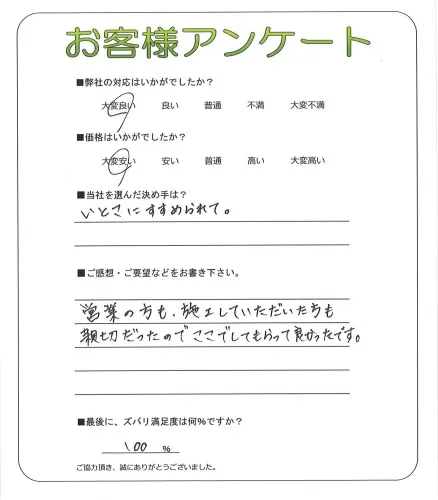 お客様アンケート
■弊社の対応はいかがでしたか?
大変良い 良い 普通 不満 大変不満
■価格はいかがでしたか?
大変安い 安い 普通 高い 大変高い
■当社を選んだ決め手は?
いとこにすすめられて。
■ご感想・ご要望などをお書き下さい。
営業の方も、施工していただいたち方も
親切だったのでここでしてもらって良かったです。
■最後に、ズバリ満足度は何%ですか?
100 %
ご協力頂き、誠にありがとうございました。